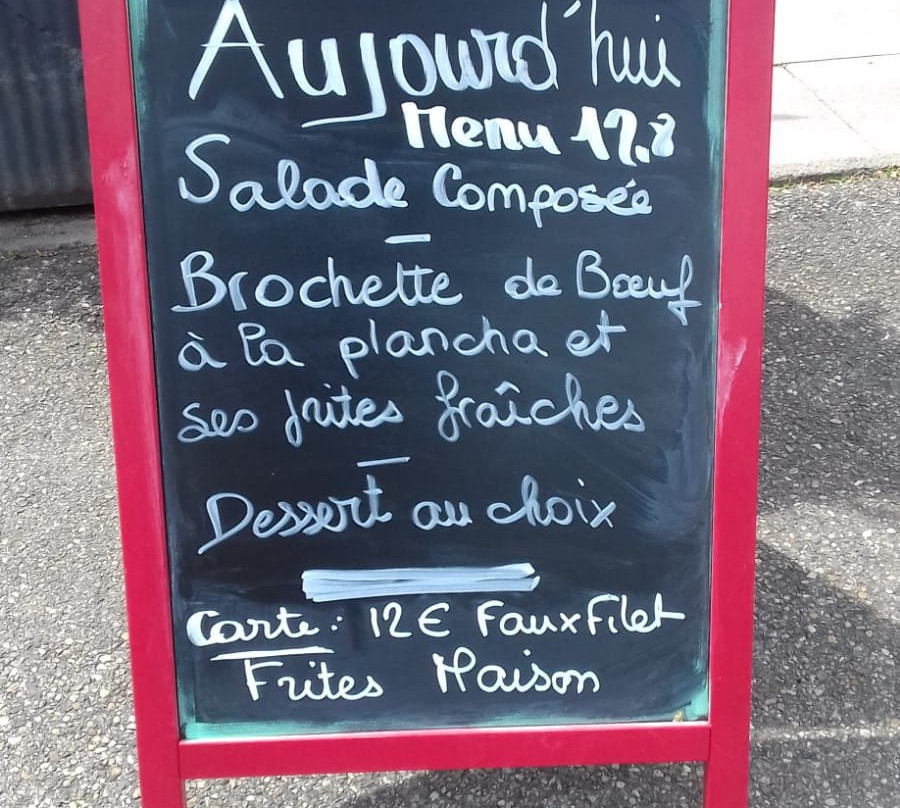 Aujourd'hui
Menu 12.8
Salade Composée
—
Brochette de Bœuf
à la plancha et
ses frites fraîches
—
Dessert au choix
Carte: 12€ Faux Filet
Frites Maison